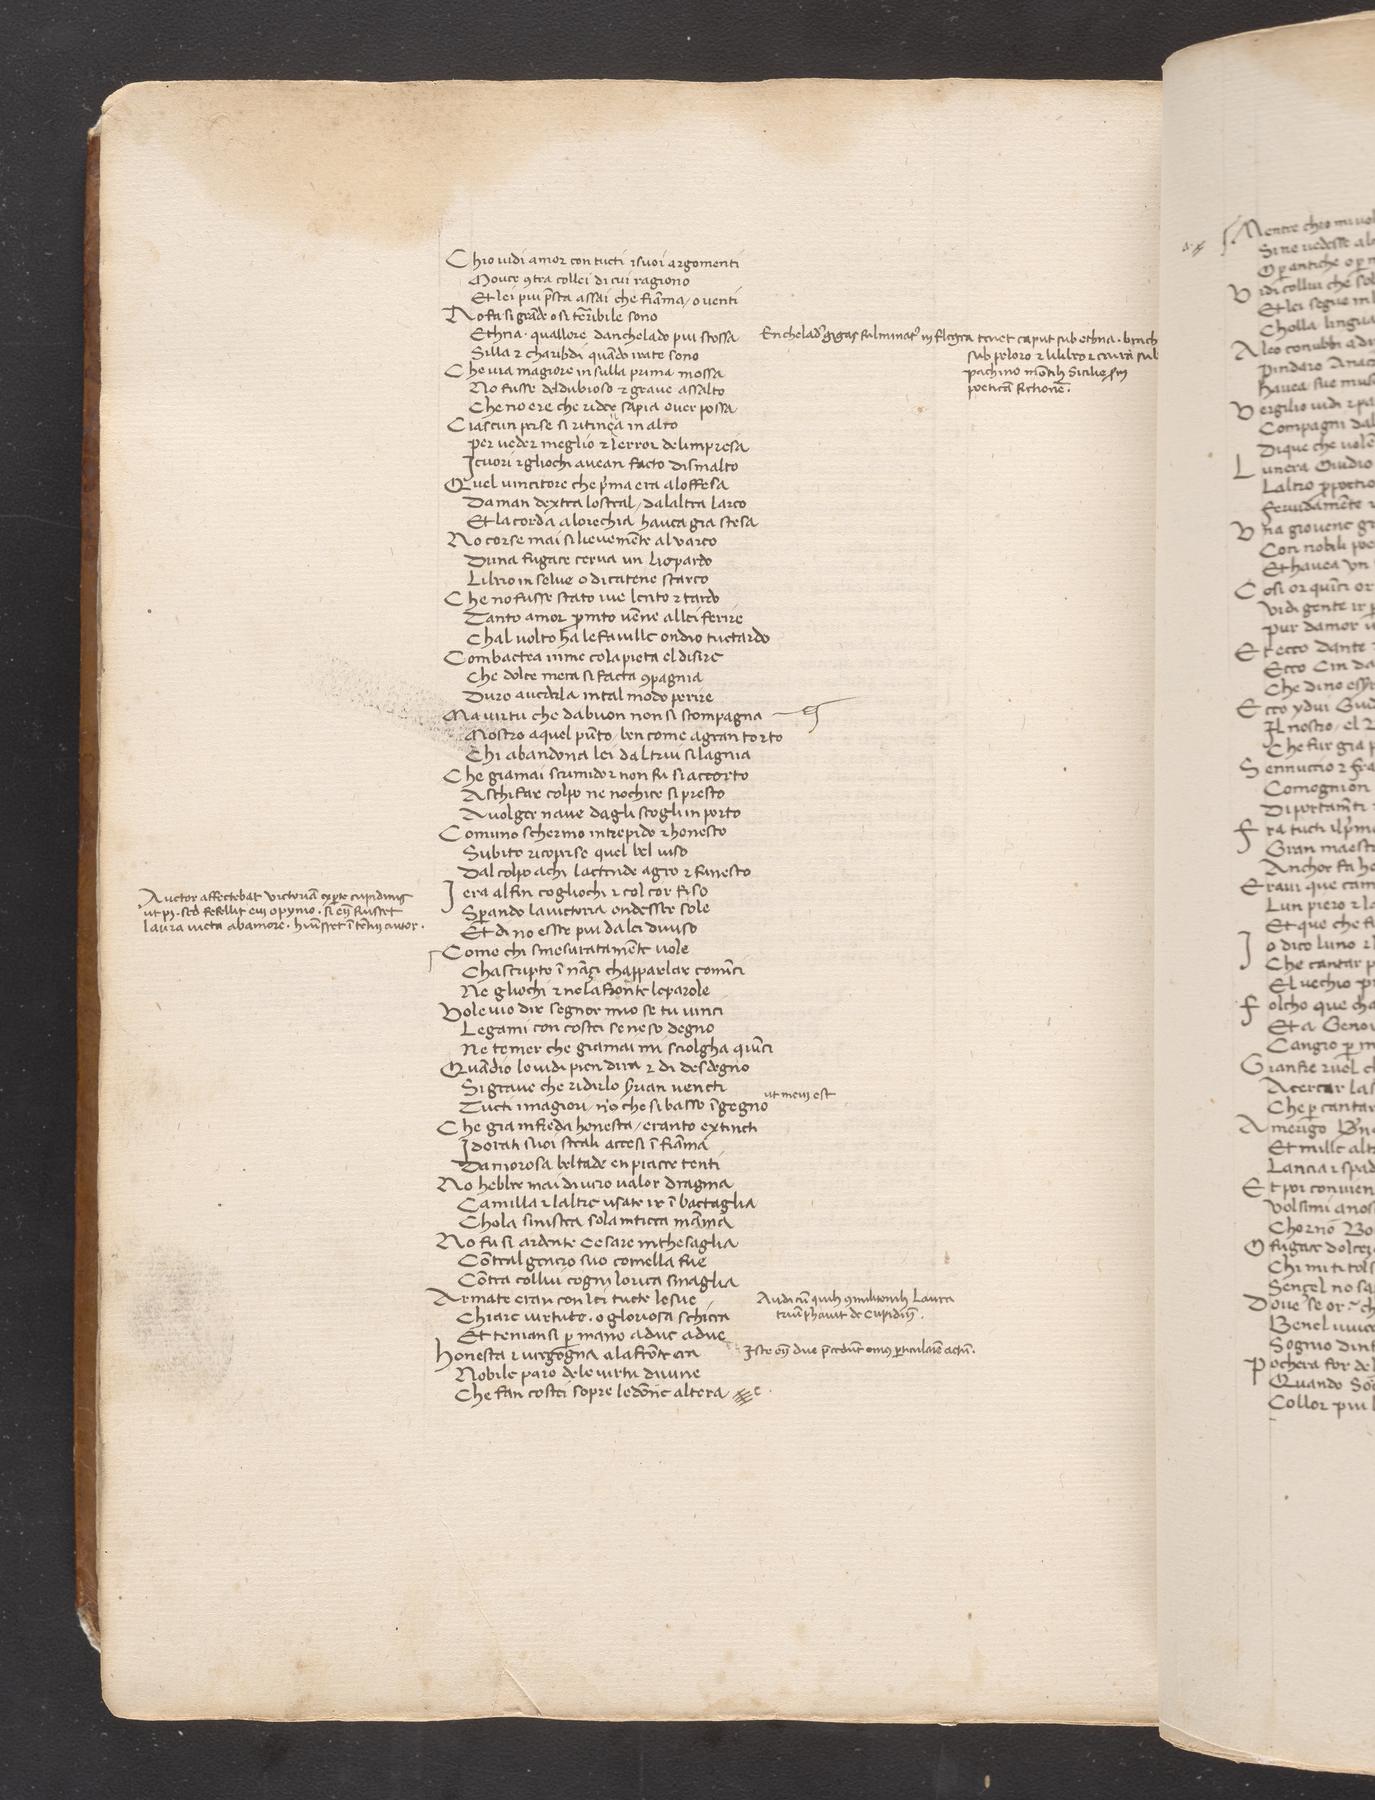 Chio uidi amor con tucti i suoi argomenti
Mouer ɔtra collei di cui ragiono
Et lei piu p̄sta assai che fiãma / o uenti
Nõ fa si grãde o si terribile sono
Ethna · quallore danchelado piu scossa
Silla ⁊ charibdi quãdo irate sono
Che uia magiore in sulla prima mossa
Nõ fusse del dubioso ⁊ graue assalto
Che nõ e re che ridir sapia ouer possa
Ciascun per se si ritirãça in alto
Per ueder meglio ⁊ lerror delimpresa
I cuori ⁊ gliochi auean facto dismalto
Quel uincitore che p̃ma era aloffesa
Da man dextra lo stral / dalaltra larco
Et la corda alorechia hauea gia stesa
Nõ corse mai si lieuemẽte al varco
Duna fugace cerua un liopardo
Librio in selue o di catene scarco
Che nõ fusse stato iue lento ⁊ tardo
Tanto amor prõnto uẽne allei ferire
Chal uolto ha le fauille ondio tuctardo
Combactea in me cola pieta el disire
Che dolce mera si facta ɔpagnia
Duro auederla in tal modo perire
Ma uirtu che dabuon non si scompagna
Mostro aquel pũto / ben come agran torto
Chi abandona lei daltrui si lagnia
Che giamai scrimidor non fu si accorto
A schifar colpo ne nochier si presto
A uolger naue dagli scogli in porto
Comuno schermo intrepido ⁊ honesto
Subito ricoprse quel bel uiso
Dal colpo achi lactende agro ⁊ funesto
I era al fin cogliochi ⁊ col cor fiso
Sperando la uictoria ondesser sole
Et di nõ esser piu da lei diuiso
Come chi smesuratamẽte uole
Cha scripto ĩ nãçi chapparlar comĩci
Ne gliochi ⁊ ne la frõnte le parole
Voleuio dir segnor mio se tu uinci
Legami con costei se ne so degno
Ne temer che giamai mi sciolgha quĩci
Quãdio lo uidi pien dira ⁊ di desdegno
Si graue che ridirlo serian uencti
Tucti i magiori / nõ che si basso ĩgegno
Che gia in freda honesta / eranto extincti
I dorati suoi strali accesi ĩ fiãma
Damorosa beltade en piacer tenti
Nõ hebbe mai di uero valor dragma
Camilla ⁊ laltre usate ir ĩ bactaglia
Chola sinistra sola interra mãma
Nõ fu si ardente Cesare in thesaglia
Cõntral genero suo comella fue
Cõntra collui cogni lorica smaglia
Armate eran con lei tucte le sue
Chiare uirtute · o gloriosa schiera
Et teniansi p mano a due a due
Honesta ⁊ uergogna ala frõnte era
Nobile paro dele uirtu diuine
Che fan costei sopre le dõne altera
Enchelad⁹ gigas fulminat⁹ in flegra tenet caput sub ethna ·
sub peloro ⁊ lilibeo ⁊
pachino mõtib; Sicilie
poeticã fictionẽ ·
Auctor affectebat victoriã ex pte cupidinis
sed fefellit eum opynio · si em̃ fuisset
laura victa ab amore ·
ut meus est
Laura
triũphauit de Cupidine ·
Iste em̃ due
Mentre chio mi uol
Si ne uedesse
O p antiche o p m
Vidi collui che sol
Et lei segue in l
Cholla lingua
Alceo conubbi a di
Pindaro Anac
hauea sue mus
Vergilio uidi ⁊ pa
Compagni dal
Di que che uole
Lunera Ouidio
Laltro propertio
feruidamẽte
Vna giouene gr
Con nobili poe
Et hauea vn
Cosi or quĩci or
Vidi gente ir p
Pur damor
Et ecco dante
Ecco Cin da
Che di nõ esser
Ecco y dui Gui
Che fur gia p
Sennuccio ⁊ fra
Comognion
Di portamẽti
fra tucti il p̃mo
Gran maestr
Anchor fa ho
Eraui que cam
Lun piero ⁊ la
Et que che fu
Io dico luno ⁊
Che cantar p
El vechio
folcho que cha
Et a Genou
Cangio p m
Gianfre ruel ch
Acercar las
Che p cantar
Amerigo
Et mille altri
Lancia ⁊ spad
Et poi conuien
Volsimi anos
O fugace dolcez
Chi mi ti tols
Senzel nõ sa
Doue se or
Ben el uiuer
Sognio dinf
Pochera for de
Quando
Collor piu l